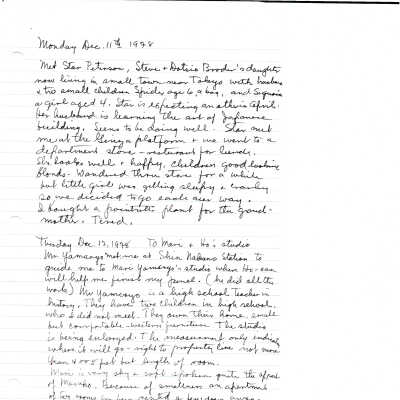 Monday Dec. 11th 1978
Met Star Peterson, Steve + Dotsie Brooder's daughter
now living in small town near Tokyo with husband
+ two small children Spider age 6, a boy, and
a girl aged 4. Star is expecting another in April.
Her husband is learning the art of Japanese
building. Seems to be doing well. Star met
me at the Ginza platform + we went to a
department store - restaurant for lunch.
She looks well + happy, children good looking
blonds. Wandered thru store for a while
but little girl was getting sleepy + cranky
so we decided to go each our way.
I bought a plant for the Grand-
mother. Tired.
Tuesday Dec 12, 1978 To Mari + Ho's studio
Mr Yamasayo met me at Station to
guide me to Mari Yamasayo's studio where Ho-san
will help me print my panel. (he did all the
work) Mr Yamasayo is a high school teacher in
history. They have two children in high school
who I did not meet. They own their home, small
but comfortable - western furniture The studio
is being enlarged. The measurement only
where it will go - right to property line not more
than 4 feet but length of room.
Mari is very shy + soft spoken quite the opposite
of Because of smallness an apartment
of two rooms has been rented a few doors away.